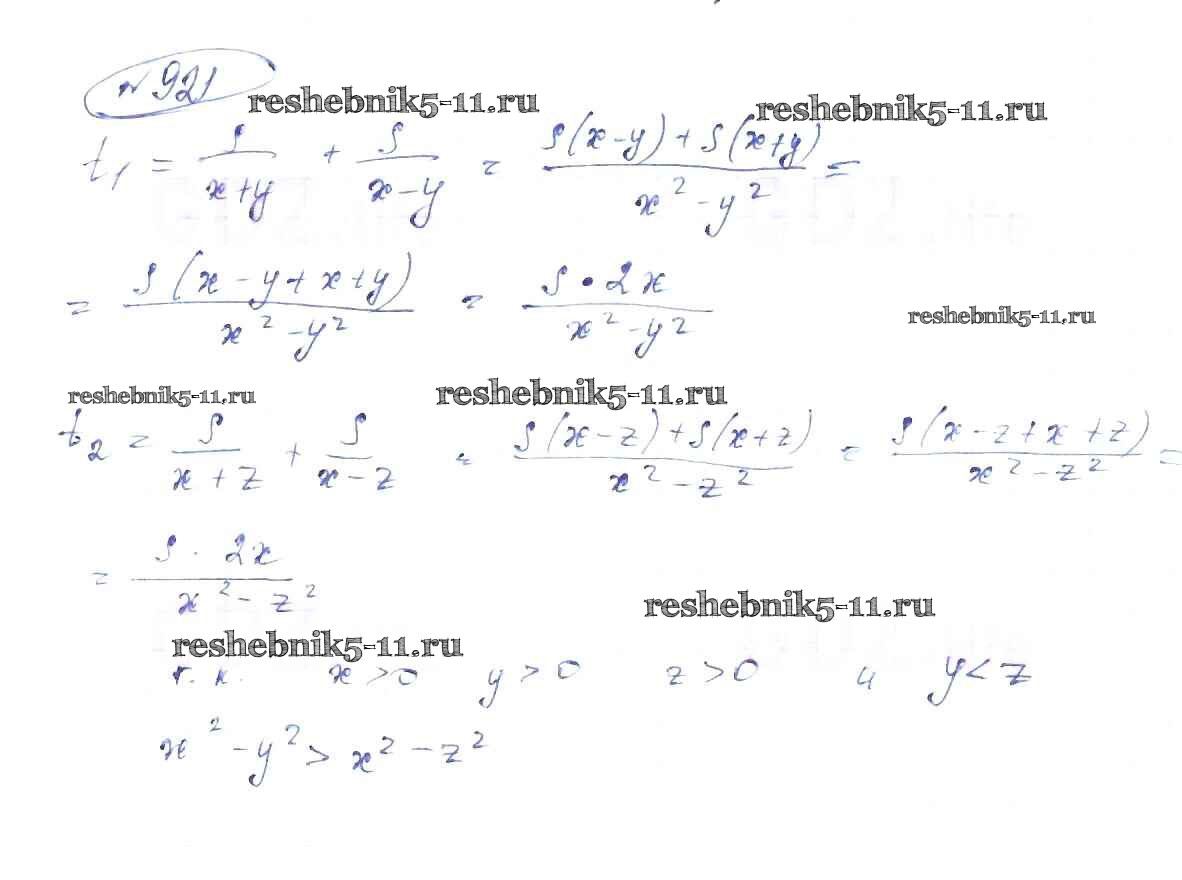 № 921
reshebnik5-11.ru reshebnik5-11.ru
t₁ = S/(x+y) + S/(x-y) = (S(x-y) + S(x+y))/(x²-y²) =
= S(x-y+x+y)/(x²-y²) = S·2x/(x²-y²)
reshebnik5-11.ru
reshebnik5-11.ru reshebnik5-11.ru
t₂ = S/(x+z) + S/(x-z) = (S(x-z)+S(x+z))/(x²-z²) = S(x-z+x+z)/(x²-z²) =
= S·2x/(x²-z²)
reshebnik5-11.ru
reshebnik5-11.ru
т.к. x>0 y>0 z>0 и y<z
x²-y² > x²-z²